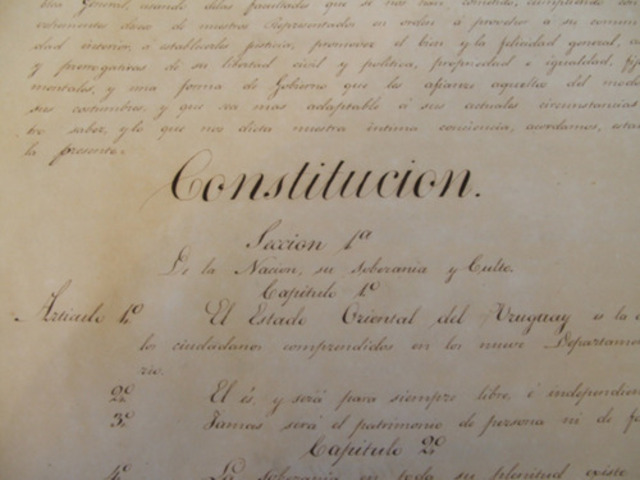 General, usando delas facultades que se nos han cometido, cumpliendo con
vehementes deseos de nuestros Representados en orden á proveer á su comun
dad interior, á establecerles justicia, promover el bien y la felicidad general, a
y prerrogativas de su libertad civil y politica, propiedad é igualdad, fij
mentales, y una forma de Gobierno que les afiance aquellos del modo
sus costumbres, y que sea mas adaptable á sus actuales circunstancias
tro saber, y lo que nos dicta nuestra intima conciencia, acordamos, esta
la presente.
Constitucion.
Seccion 1ª
De la Nacion, su Soberania y Culto.
Capitulo 1º
Articulo 1º El Estado Oriental del Uruguay es la
los ciudadanos comprendidos en los nueve Departame
rio.
2º El és, y será para siempre libre, é independien
3º Jamas será el patrimonio de persona ni de fa
Capitulo 2º
4º La soberania en toda su plenitud existe